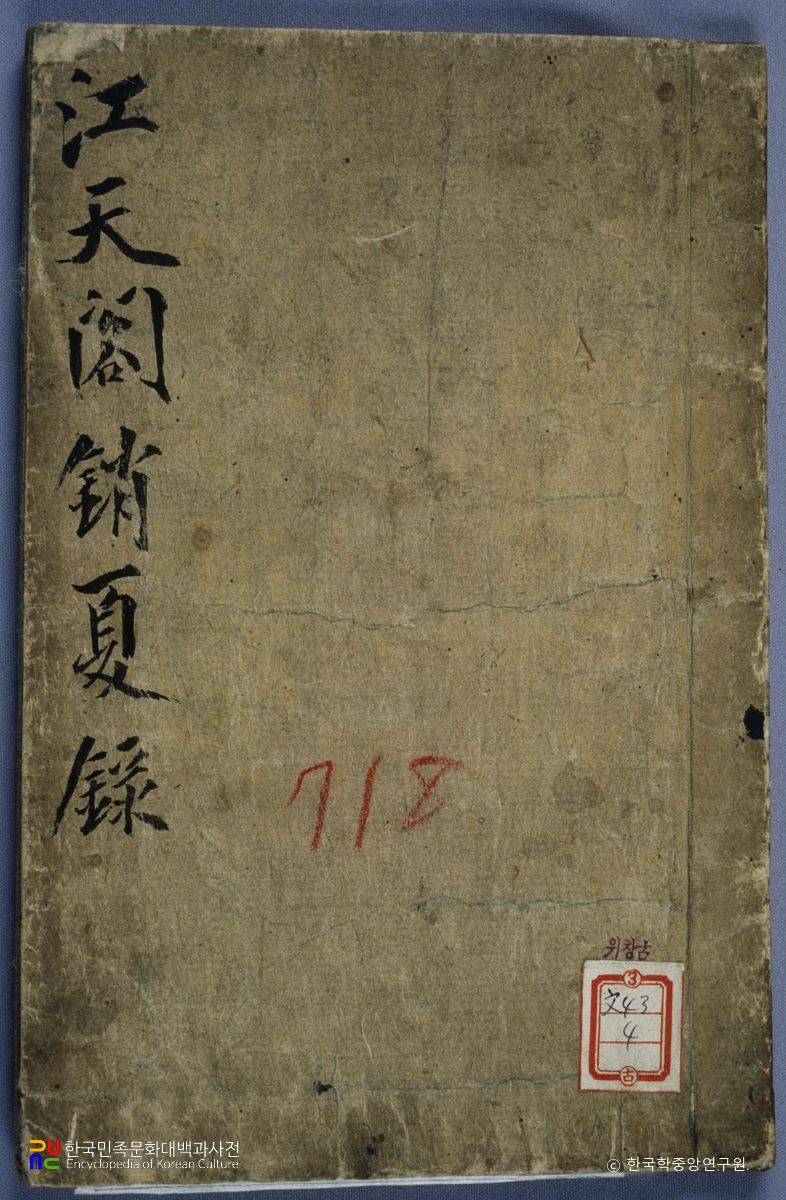 江天閣銷夏錄
718
위창古
3
文43
4
古
한국민족문화대백과사전
Encyclopedia of Korean Culture
© 한국학중앙연구원.